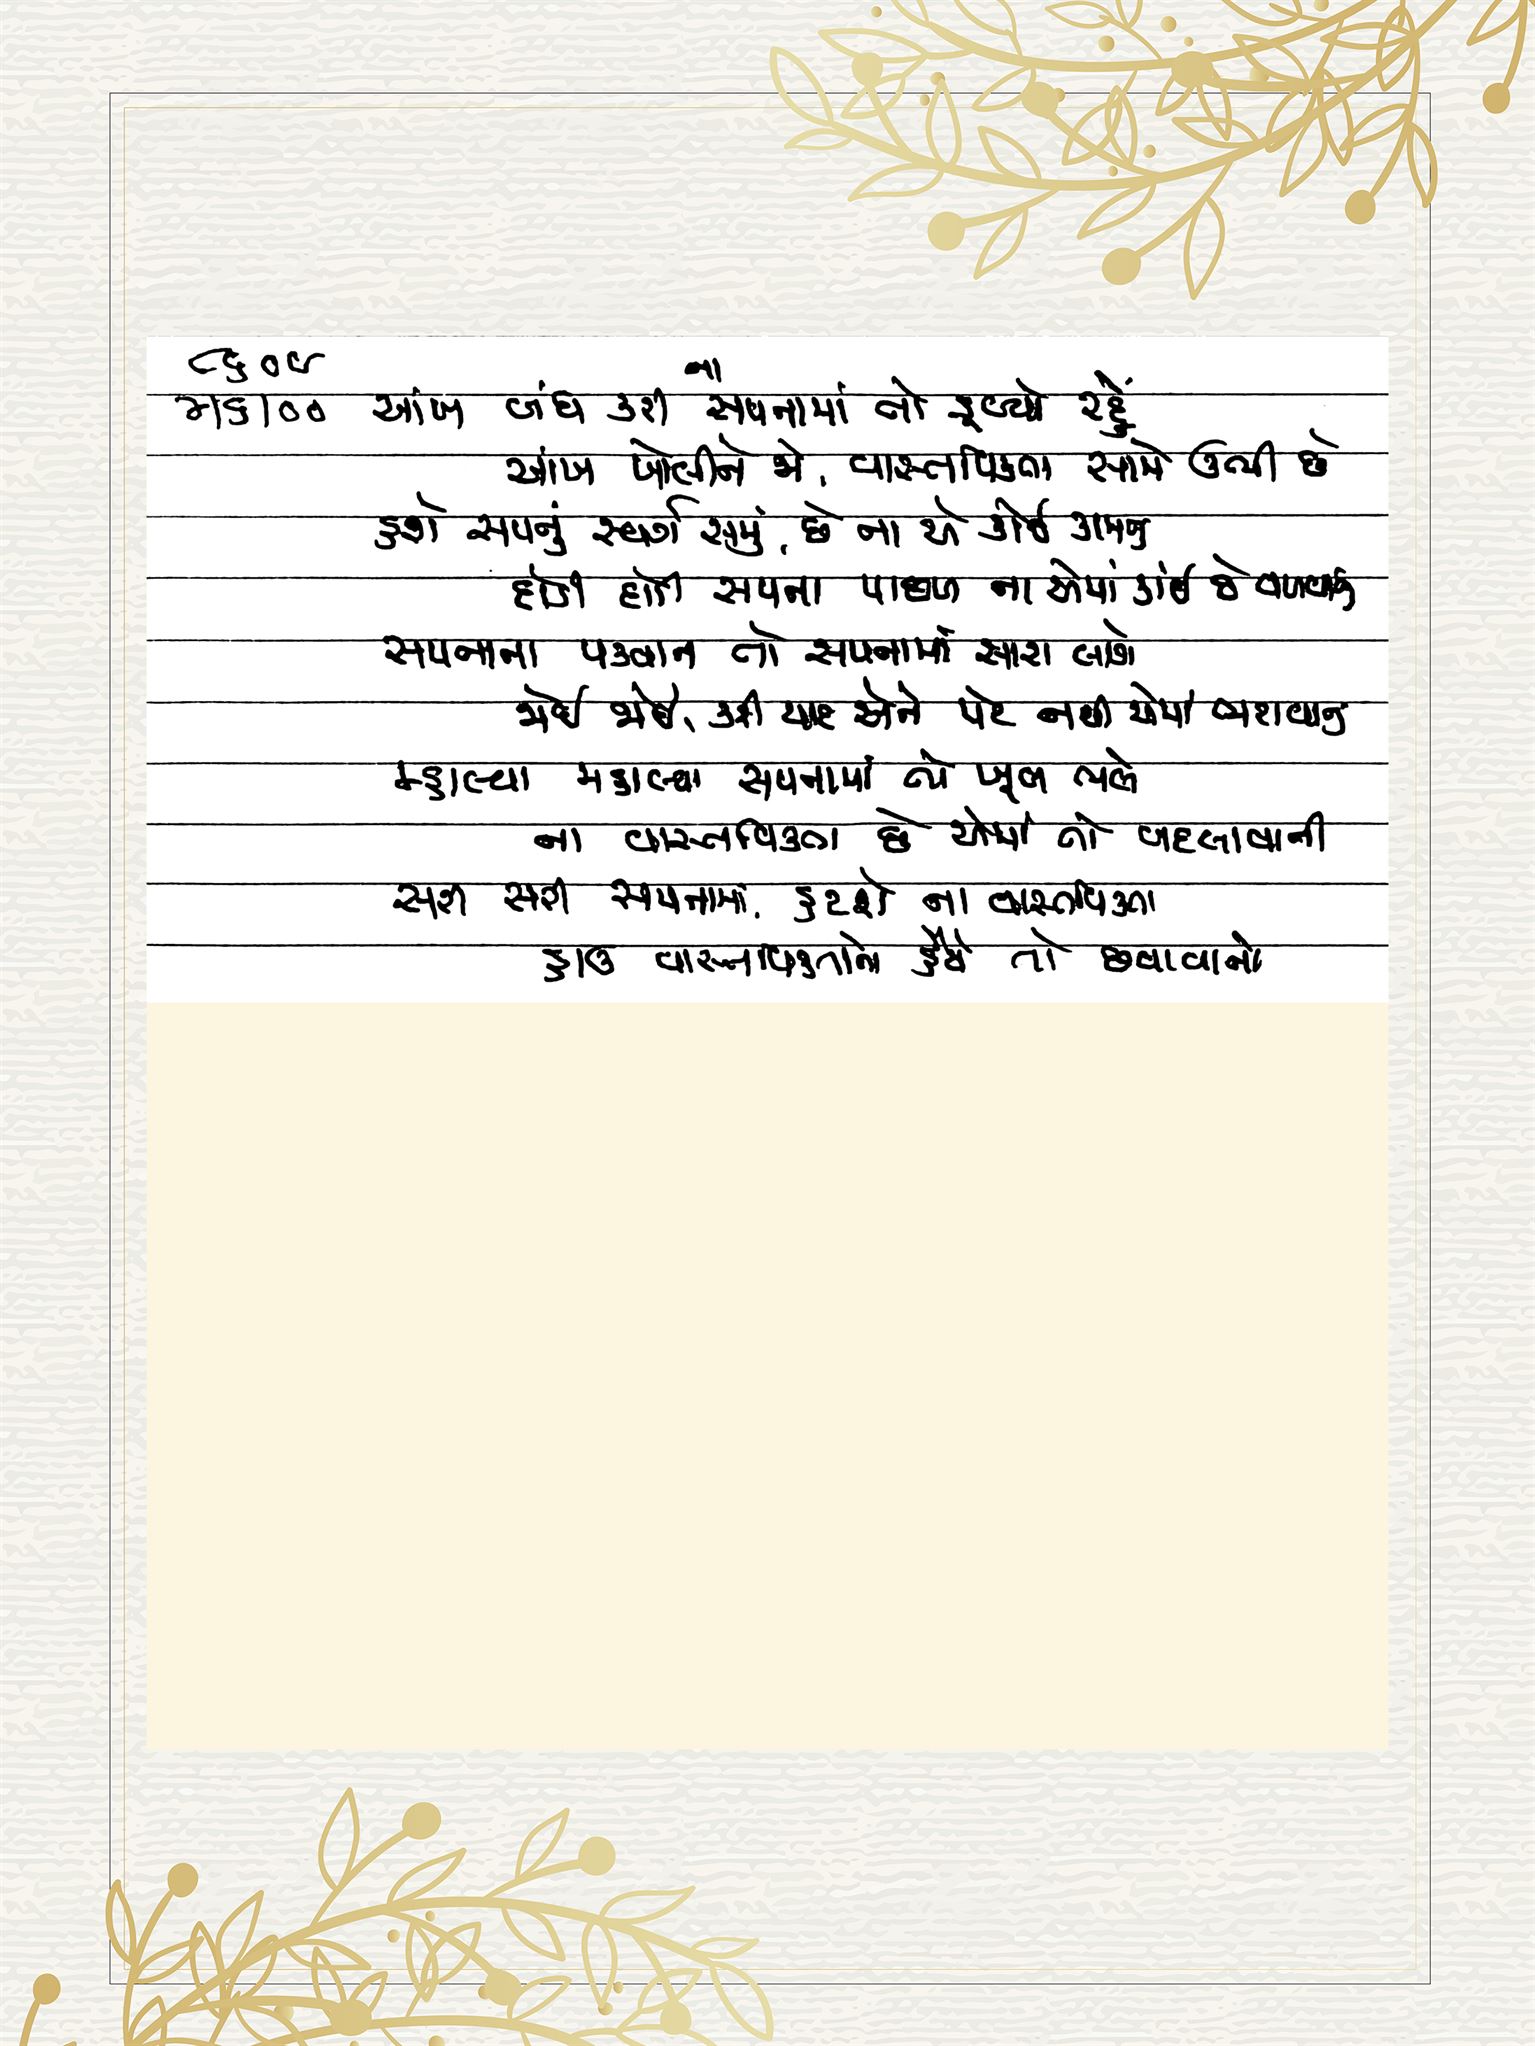 ૮૬૦૯
૨૫/૬/૦૦ આંખ બંધ કરી ના સપનામાં તો ડૂબ્યો રહું
આંખ ખોલીને જો, વાસ્તવિકતા સામે ઊભી છે
હશે સપનું સ્વર્ગ સમું, છે ના એ કોઈ કામનું
દોડી દોડી સપના પાછળ ના એમાં કાંઈ છે વળવાનું
સપનાના પકવાન તો સપનામાં સારા લાગે
જોઈ જોઈ, કરી યાદ એને પેટ નથી એમાં ભરાવાનું
મ્હાલ્યા મ્હાલ્યા સપનામાં તો ખૂબ ભલે
ના વાસ્તવિકતા છે એમાં તો બદલાવાની
સરી સરી સપનામાં, હટશે ના વાસ્તવિકતા
હાઉ વાસ્તવિકતાનો હૈયે તો છવાવાનો